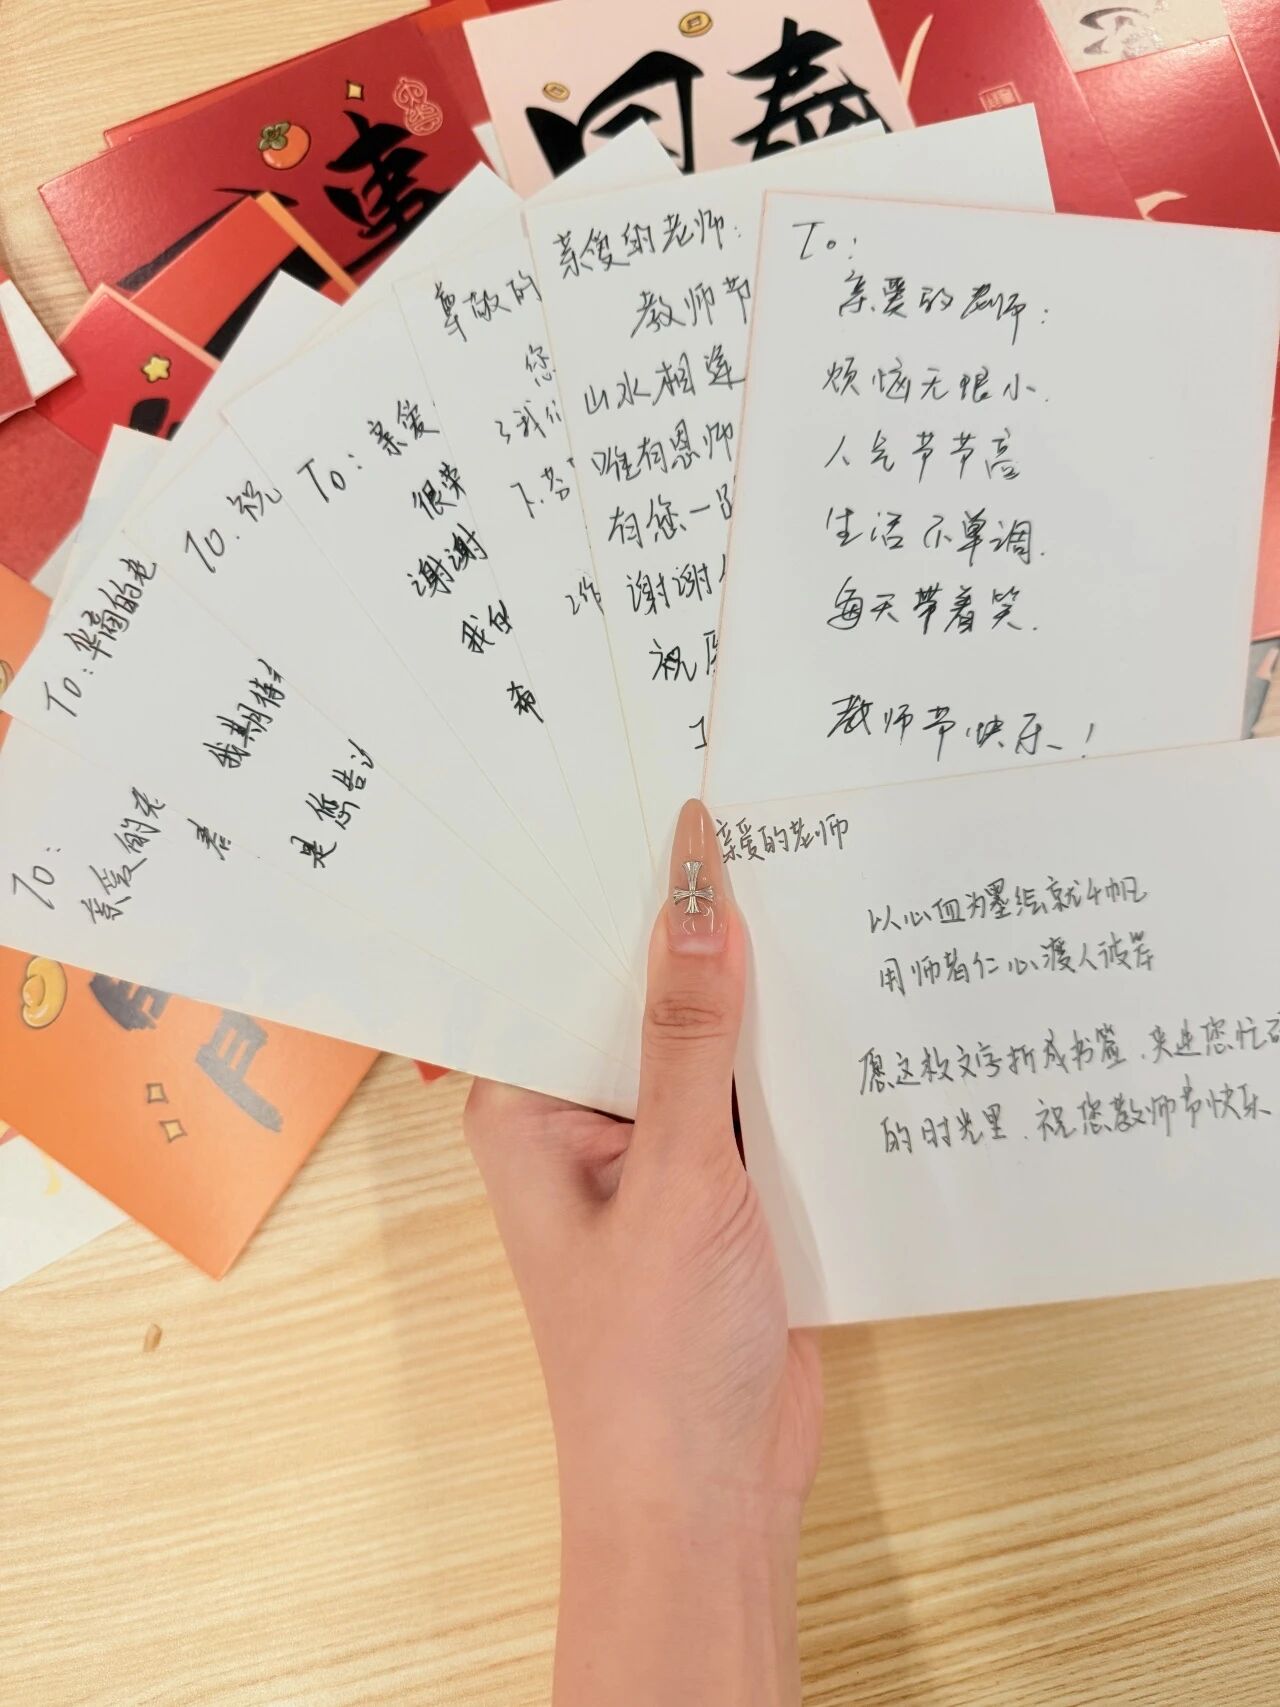 To:
亲爱的老师:
烦恼无限小.
人气节节高
生活不单调.
每天带着笑.
教师节快乐!
亲爱的老师
以心血为墨绘就千帆
用师者仁心渡人彼岸
愿这枚文字折成书签.夹进您忙碌
的时光里.祝您教师节快乐
亲爱的老师:
教师节
山水相逢
唯有恩师
有您一路
谢谢
祝愿
尊敬的
您
我们
工作
To:亲爱
很荣
谢谢
我的
希
To.祝
我期待
是您告
To:华商的老
者
To:
亲爱的老